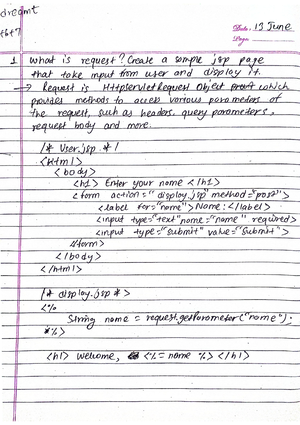 dreamt
tbt7
Date: 13 June
Page:
1 What is request? Create a sample jsp page
that take input from user and display it.
→ Request is HttpServletRequest Object which
provides methods to access various parameters of
the request, such as headers, query parameters,
request body and more.
/* User.jsp. */
<Html>
<body>
<h1> Enter your name </h1>
<form action="display.jsp" method="post">
<label for="name">Name:</label>
<input type="text" name="name" required>
<input type="submit" value="Submit">
</form>
</body>
</html>
/* display.jsp *>
<%
String name = request.getParameter("name");
%>
<h1> Welcome, <%= name %> </h1>